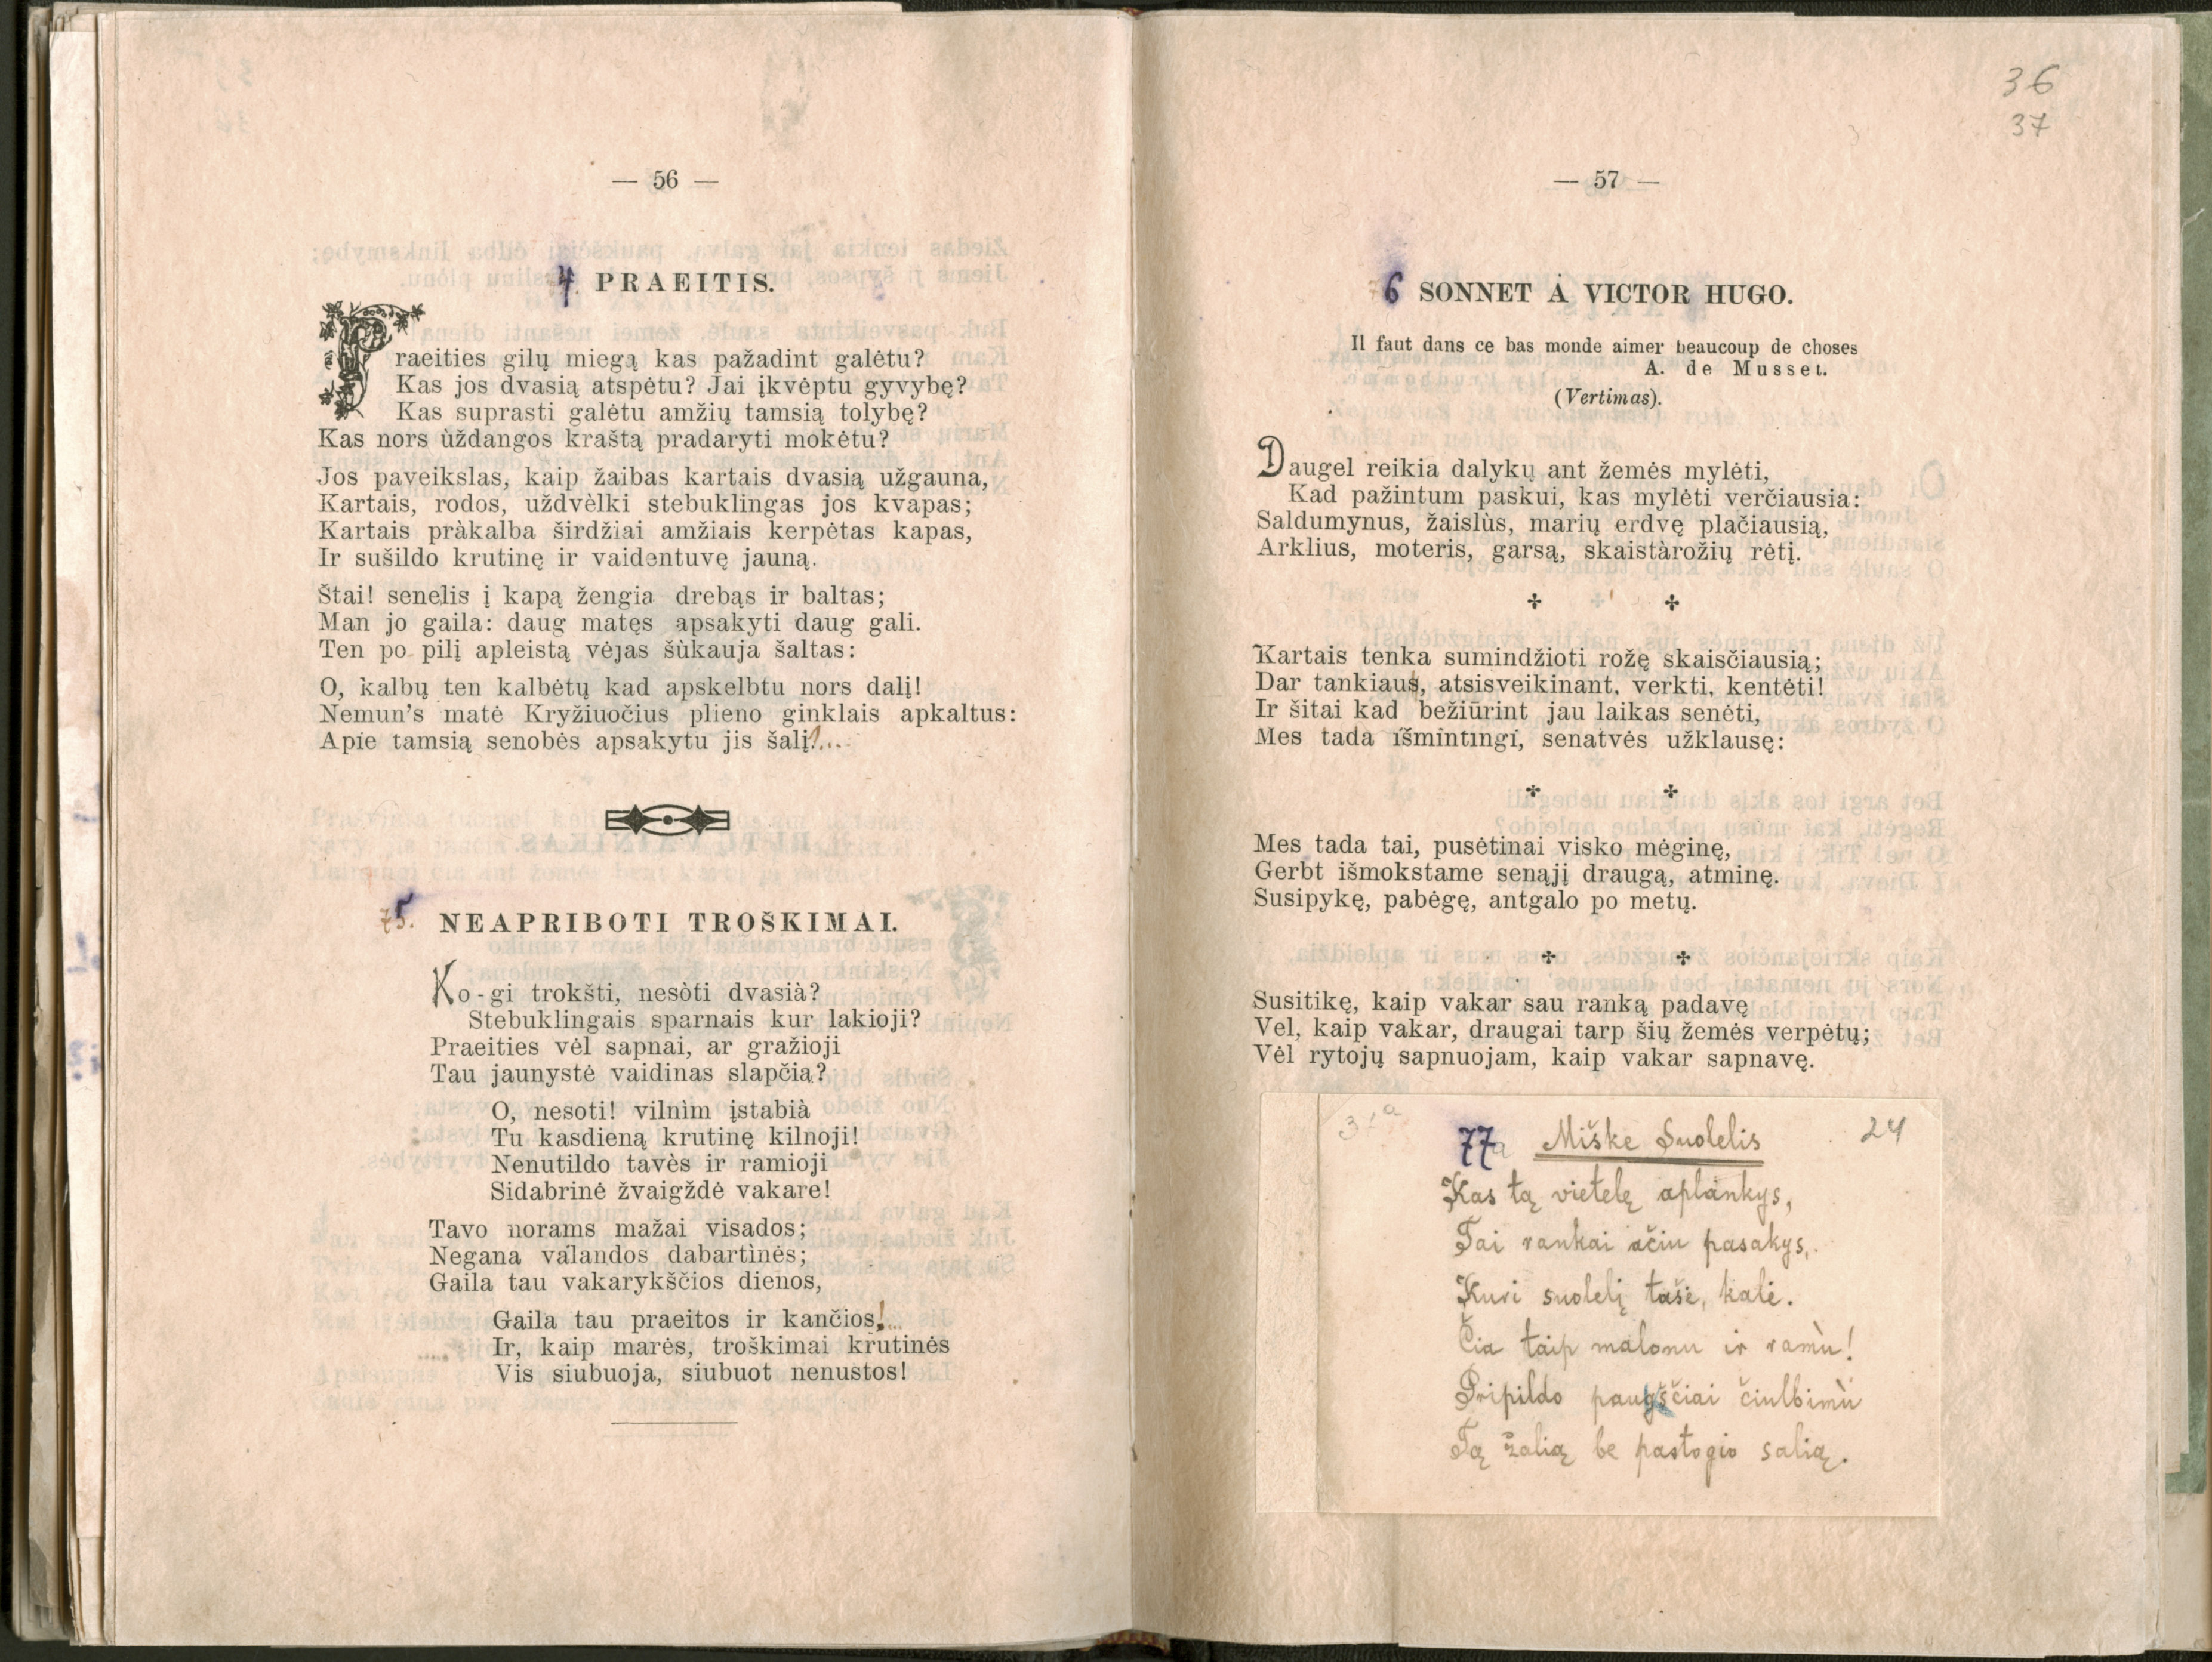 — 56 —
4 PRAEITIS.
Praeities gilų miegą kas pažadint galėtu?
Kas jos dvasią atspėtu? Jai įkvėptu gyvybę?
Kas suprasti galėtu amžių tamsią tolybę?
Kas nors ùždangos kraštą pradaryti mokėtu?
Jos paveikslas, kaip žaibas kartais dvasią užgauna,
Kartais, rodos, uždvèlki stebuklingas jos kvapas;
Kartais pràkalba širdžiai amžiais kerpėtas kapas,
Ir sušildo krutinę ir vaidentuvę jauną.
Štai! senelis į kapą žengia drebąs ir baltas;
Man jo gaila: daug matęs apsakyti daug gali.
Ten po pilį apleistą vėjas šùkauja šaltas:
O, kalbų ten kalbėtų kad apskelbtu nors dalį!
Nemun's matė Kryžiuočius plieno ginklais apkaltus:
Apie tamsią senobės apsakytu jis šalį!...
75. NEAPRIBOTI TROŠKIMAI.
Ko-gi trokšti, nesòti dvasià?
Stebuklingais sparnais kur lakioji?
Praeities vėl sapnai, ar gražioji
Tau jaunystė vaidinas slapčia?
O, nesoti! vilnìm įstabià
Tu kasdieną krutinę kilnoji!
Nenutildo tavès ir ramioji
Sidabrinė žvaigždė vakare!
Tavo norams mažai visados;
Negana valandos dabartìnės;
Gaila tau vakarykščios dienos,
Gaila tau praeitos ir kančios!..
Ir, kaip marės, troškimai krutinės
Vis siubuoja, siubuot nenustos!
36
37
— 57 —
6 SONNET À VICTOR HUGO.
Il faut dans ce bas monde aimer beaucoup de choses
A. de Musset.
(Vertimas).
Daugel reikia dalykų ant žemės mylėti,
Kad pažintum paskui, kas mylėti verčiausia:
Saldumynus, žaislùs, marių erdvę plačiausią,
Arklius, moteris, garsą, skaistàrožių rėtį.
Kartais tenka sumindžioti rožę skaisčiausią;
Dar tankiaus, atsisveikinant, verkti, kentėti!
Ir šitai kad bežiūrint jau laikas senėti,
Mes tada išmintingi, senatvės užklausę:
Mes tada tai, pusėtinai visko mėginę,
Gerbt išmokstame senąjį draugą, atminę.
Susipykę, pabėgę, antgalo po metų.
Susitikę, kaip vakar sau ranką padavę
Vel, kaip vakar, draugai tarp šių žemės verpėtų;
Vėl rytojų sapnuojam, kaip vakar sapnavę.
37a
77a Miške Suolelis 24
Kas tą vietelę aplankys,
Tai rankai ačiu pasakys,
Kuri suolelį tašė, kalė.
Čia taip malonu ir ramù!
Pripildo paugščiai čiulbimù
Tą žalią be pastogio salią.